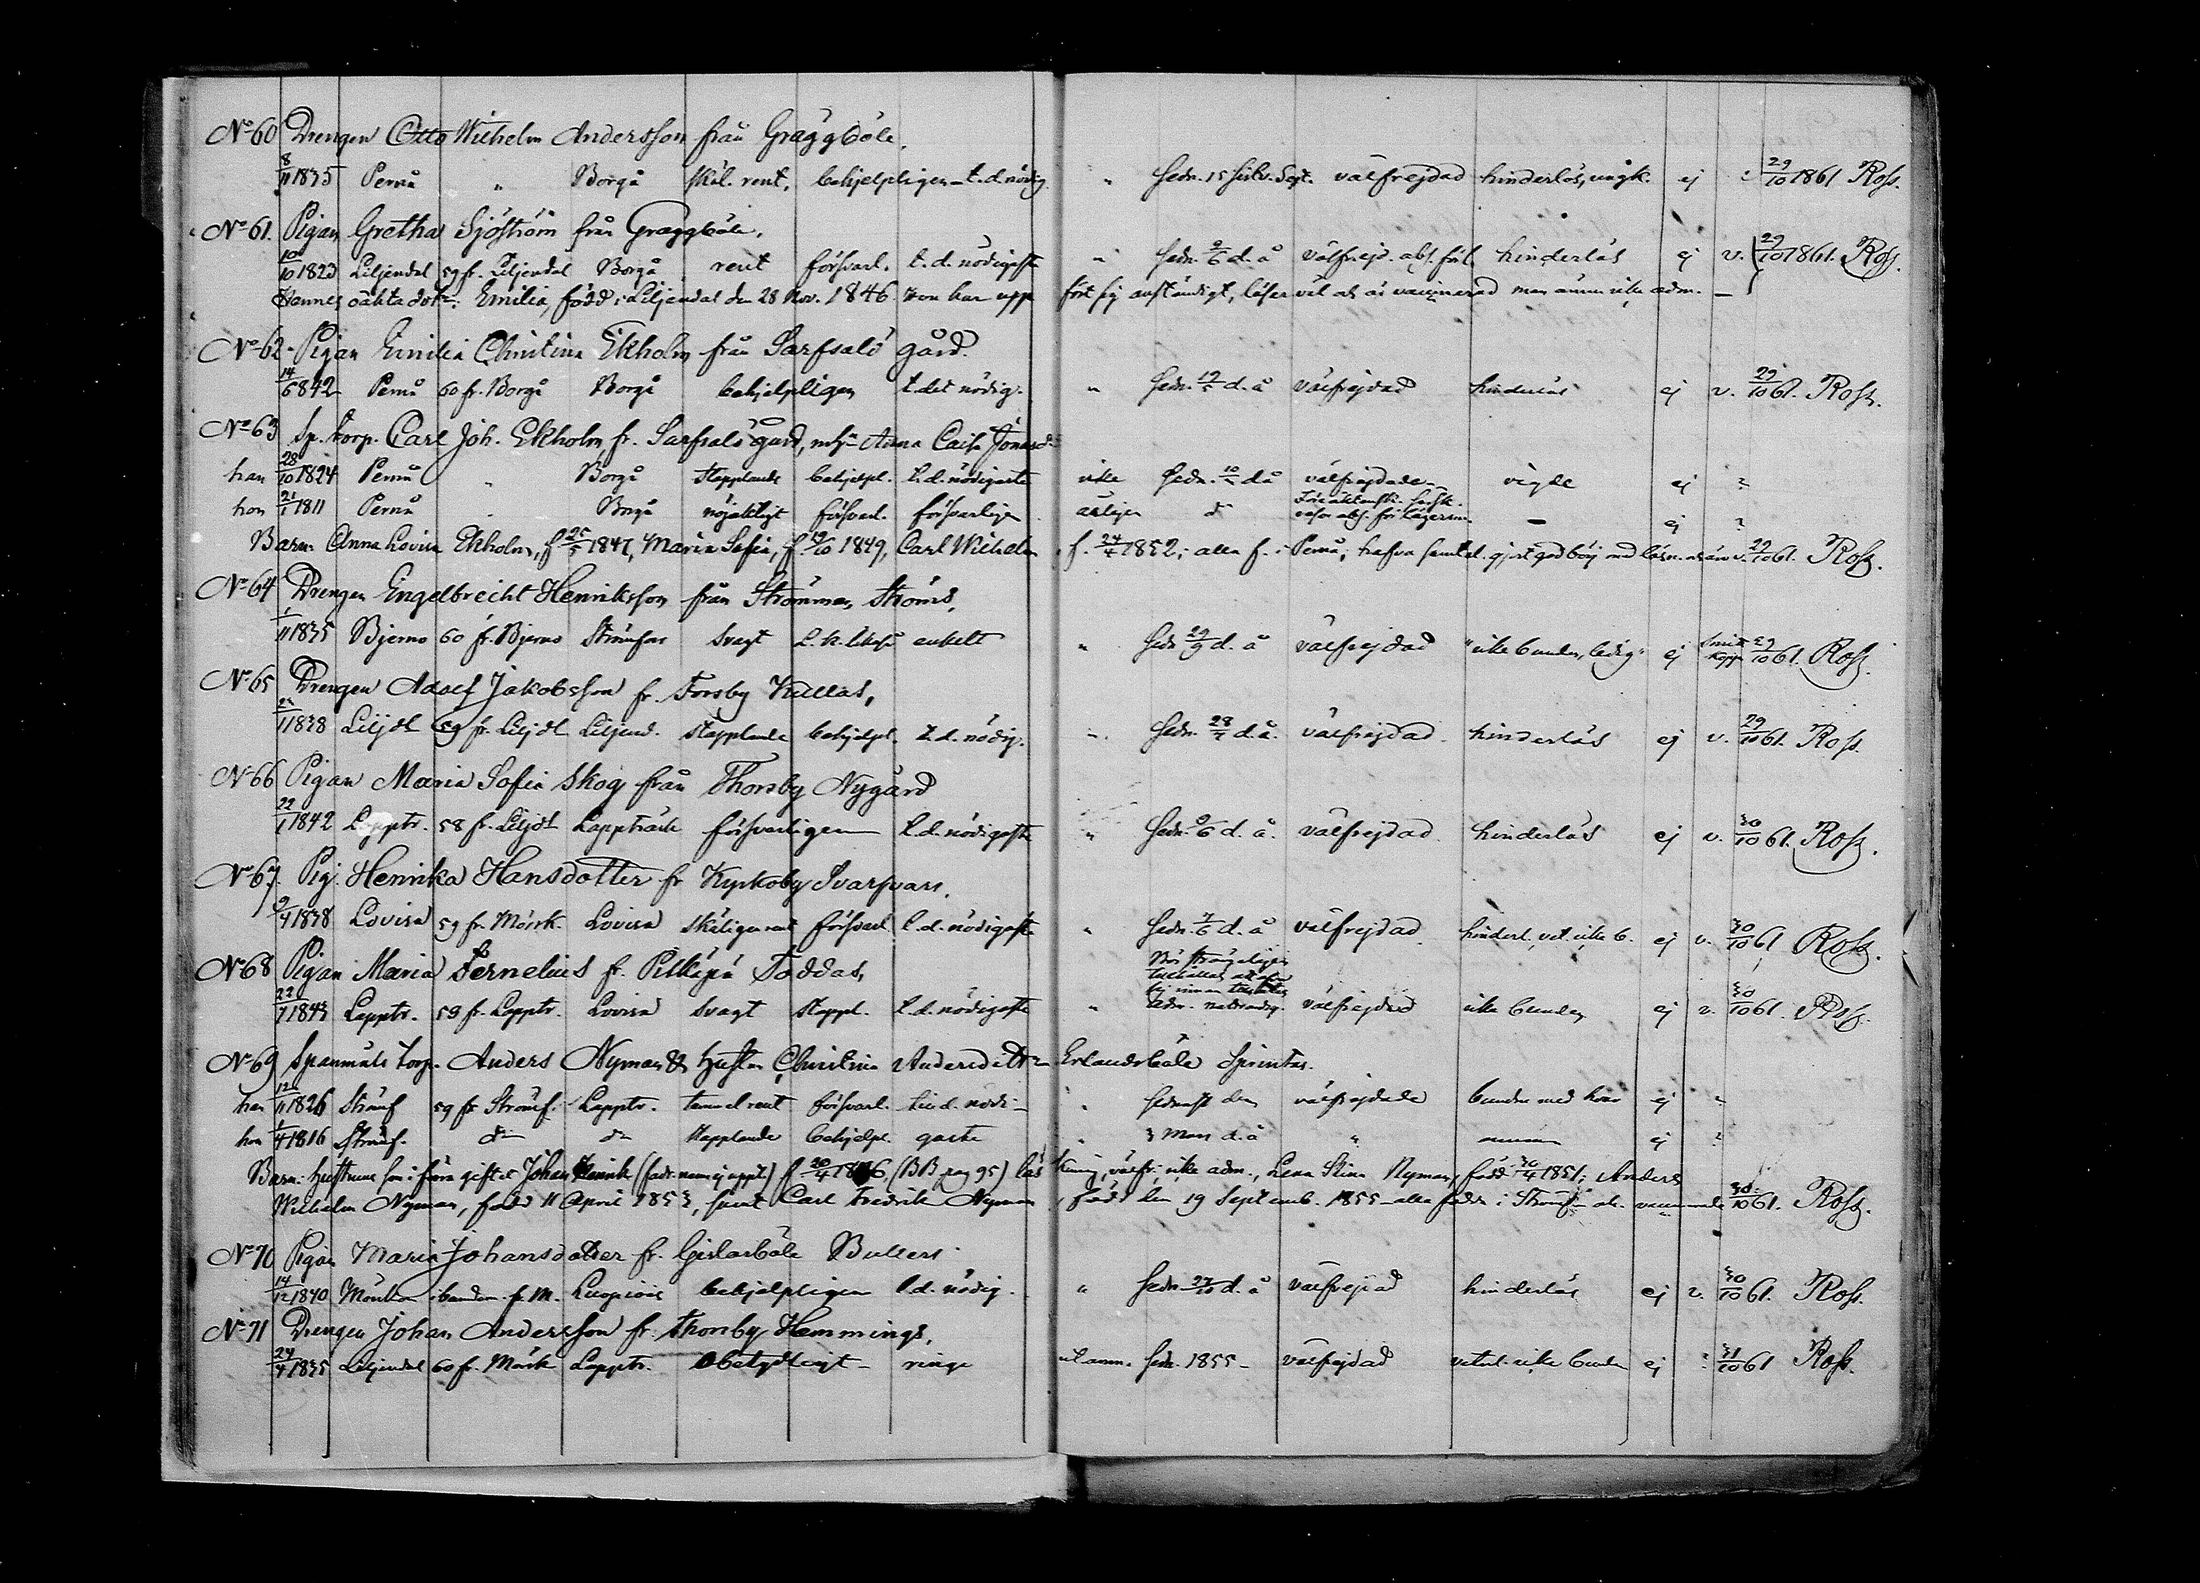 No 60 Drengen Otto Wilhelm Andersson från Gräggböle.
8/11 1835 Pernå " Borgå skäl. rent. behjelpligen t. d. nödig. " sedn. 15 sistv. Sept. välfrejdad hinderlös, ej 29/10 1861 Ross.
No 61. Pigan Gretha Sjöström från Gräggböle.
10/10 1823 Liljendal 59 fr. Liljendal Borgå rent försvarl. t. d. nödigaste " sedn. 9/6 d. å välfrejd. abs. för hinderlös ej v. 29/10 1861. Ross.
Hennes oäkta dotr. Emilia, född i Liljendal den 28 Nov. 1846 som har upp fört sig anständigt, läser väl och är vaccinerad men ännu icke adm. —
No 62. Pigan Emilia Christina Ekholm från Sarfsalö gård.
14/6 842 Pernå 60 fr. Borgå Borgå behjelpligen t. det nödig. " sedn. 19/5 d. å välfrejdad hinderlös ej v. 29/10 61. Ross.
No 63 Sp. torp. Carl Joh. Ekholm fr. Sarfsalö gård, m. h. Anna Caisa Jonasd.
han 28/10 1824 Pernå " Borgå stapplande behjelpl. t. d. nödigaste icke sedn. d å välfrejdade vigde ej ?
hon 21/1 1811 Pernå " Borgå nöjaktigt försvarl. försvarligen ärligen d:o — ej ?
Barn: Anna Lovisa Ekholm, f. 25/5 1847, Maria Sofia, f. 19/10 1849, Carl Wilhelm f. 24/4 1852; alla f. i Pernå, hafva gjort god börj. med läsn. 29/10 61. Ross.
No 64 Drengen Engelbrecht Henriksson från Strömmen Ströms.
1/11 1835 Bjerno 60 fr. Bjerno Strömfors svagt enkelt " sedn 29/9 d. å välfrejdad "icke bunden, ledig" ej 29/10 61. Ross.
No 65 Drengen Adolf Jakobsson fr. Forsby Kullas,
11 1838 Liljdl 59 fr. Liljdl Liljend. stapplande behjelpl. t. d. nödig. " sedn. d. å. välfrejdad hinderlös ej v. 29/10 61. Ross.
No 66 Pigan Maria Sofia Skog från Thorsby Nygård
22/1 1842 Lapptr. 58 fr. Liljdl Lappträsk försvarligen t. d. nödigaste " sedn. 9/6 d. å. välfrejdad hinderlös ej v. 30/10 61. Ross.
No 67. Pig. Henrika Hansdotter fr Kyrkoby Svarfvars.
9/4 1838 Lovisa 59 fr. Mörsk. Lovisa skäligen rent försvarl t. d. nödigaste " sedn. 7/6 d. å välfrejdad hinderl. vet. icke b. ej v. 30/10 61 Ross.
No 68 Pigan Maria Fernelius fr. Pitkäpä Toddas,
22/7 1843 Lapptr. 59 fr. Lapptr. Lovisa svagt stappl. t. d. nödigaste " välfrejdad icke bunden ej v. 30/10 61. Ross.
No 69 Spanmåls torp. Anders Nyman & hustru Christina Andersdottr Erlandsböle Sprintas.
han 12/11 1826 Strömf 59 fr Strömf. Lapptr. temmel. rent försvarl. till d. nödi- " sednast den välfrejdade bundne med hvar ej ?
hon 1/4 1816 Strömf. d:o d:o stapplande behjelpl. gaste 3 Mars d. å " annan ej ?
Barn: hustruns son i förra giftet Johan Henrik (fadr. namn ej uppt.) f. 20/4 1846 (BB pag 95) läs kunnig, välfr. icke adm., Lena Stina Nyman, född 1851; Anders
Wilhelm Nyman, född 11 April 1853, samt Carl Fredrik Nyman, född den 19 Septemb. 1855 alla födde i Strömf. och vaccinerade 30/10 61. Ross.
No 70 Pigan Maria Johansdotter fr. Gislarböle Bullers
14/12 1840 Mörskom bunden fr M. Kuopio behjelpligen t. d. nödig. " sedn. 27/10 d. å välfrejdad hinderlös ej v. 30/10 61. Ross.
No 71 Drengen Johan Andersson fr. Thorsby Hemmings.
24/4 1835 Liljendal 60 fr. Mörsk Lapptr. Obetydligt ringa utan anm. sedn. 1855 - välfrejdad veterl. icke bunden ej ? 31/10 61 Ross.